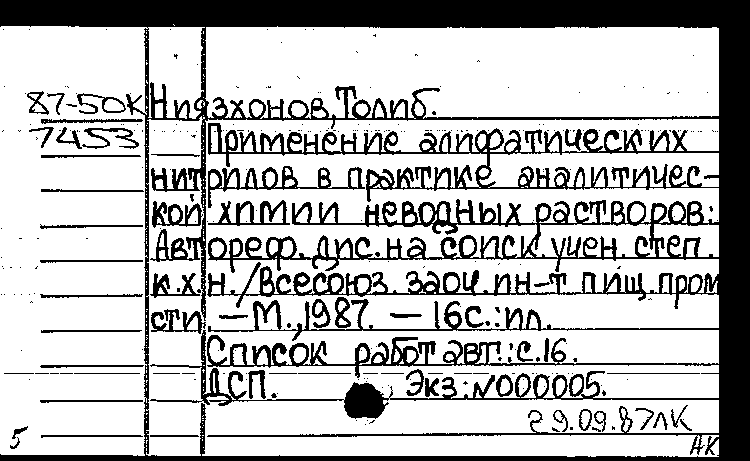 87-50К Ниязхонов, Толиб.
7453 Применение алифатических
нитрилов в практике аналитичес-
кой химии неводных растворов:
Автореф. дис. на соиск. учен. степ.
к.х.н. /Всесоюз. заоч. ин-т пищ. пром
сти. — М., 1987. — 16с.: ил.
Список работ авт.: с. 16.
ДСП. Экз: №000005.
29.09.87ЛК
5 АК